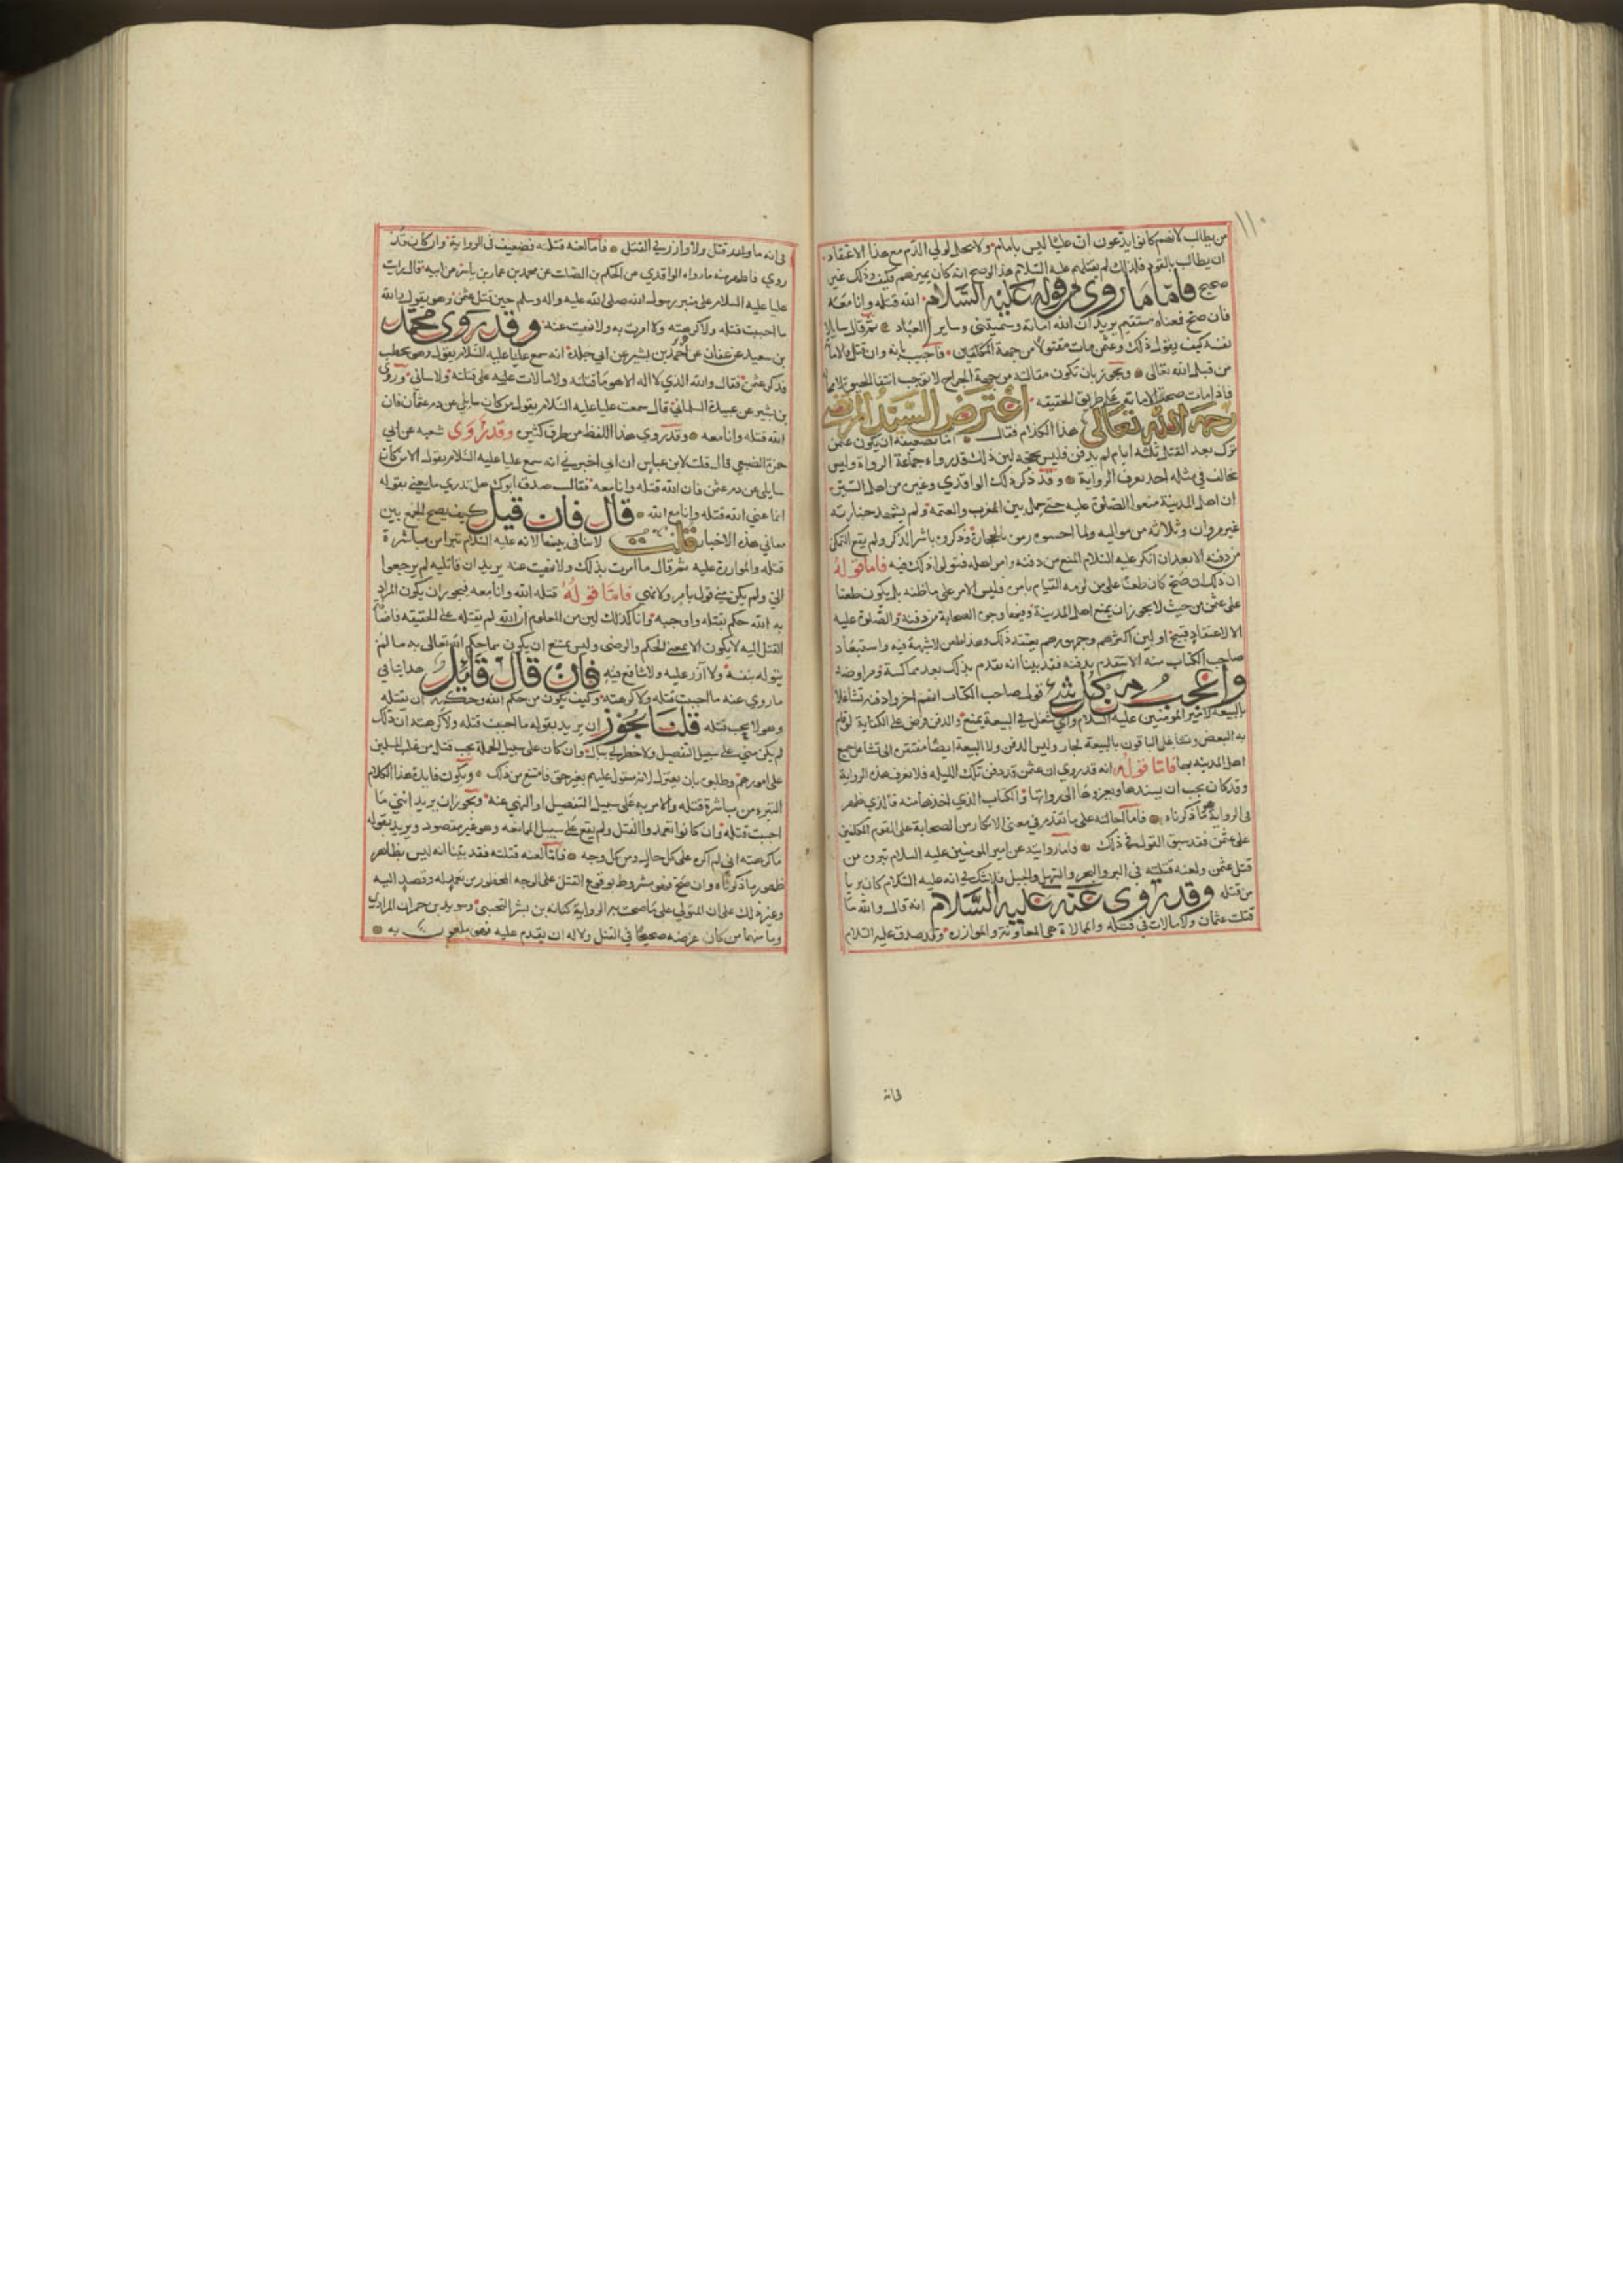 ١١٠
من يطالب لانهم كانوا يدعون ان عليا ليس بامام ولا يحل لولي الدم مع هذا الاعتقاد
ان يطالب بالقود فلذلك لم يقتلهم عليه السلام هذا لو صح انه كان يميزهم فكيف وذلك غير
صحيح فاما ما روى من قوله عليه السلام الله قتله وانا معه
فان صح فمعناه مستقيم يريد ان الله اماته وسيميتني وساير العباد ثم قال سايلا
نفسه كيف يقول ذلك وعثمن مات مقتولا من جهة المكلفين فاجيب بانه وان قتل فالاماتة
من قبل الله تعالى ويجوز بان تكون مقالته من جهة الجراح لا توجب انتفا الحيوة لا محالة
فاذا مات صحة الاماتة على طريق الحقيقه اعترض السيد المرتضى
رحمه الله تعالى هذا الكلام فقال اما تضعيفه ان يكون عثمن
ترك بعد القتل ثلثه ايام لم يدفن فليس بحجه لان ذلك قد رواه جماعة الرواة وليس
يخالف في مثله احد يعرف الرواية وقد ذكر ذلك الواقدي وغيره من اهل السيرة
ان اهل المدينة منعوا الصلوة عليه حتى حمل بين المغرب والعتمه ولم يشهد جنازته
غير مروان وثلاثة من مواليه ولما احسوه رمى بالحجارة وذكروه باشر الذكر ولم يقع التمكن
من دفنه الا بعد ان انكر عليه السلام المنع من دفنه وامر اهله فتولوا ذلك فيه فاما قوله
ان ذلك ان صح كان طعنا على من لزمه القيام بامره فليس الامر على ما ظنه بل يكون طعنا
على عثمن من حيث لا يجوز ان يمنع اهل المدينة وفيها وجوه الصحابة من دفنه والصلوة عليه
الا لاعتقاد قبيح او لان اكثرهم وجمهورهم يعتقد ذلك وهذا طعن لا شبهة فيه واستبعاد
صاحب الكتاب منه الا يتقدم بدفنه فقد بينا انه تقدم بذلك بعد مماكسة ومراوضه
واعجب من كل شيء قول صاحب الكتاب انهم اخروا دفنه تشاغلا
بالبيعة لامير المؤمنين عليه السلام واي شغل في البيعة يمنع والدفن فرض على الكفاية لو قام
به البعض وتشاغل الباقون بالبيعة لجاز وليس الدفن ولا البيعة ايضا مفتقرة الى تشاغل جميع
اهل المدينه بها فاما قوله انه قد روي ان عثمن قد دفن تلك الليله فلا نعرف هذه الرواية
وقد كان يجب ان يسندها ويعزوها الى رواتها والكتاب الذي اخذها منه فالذي ظهر
في الرواية هو ما ذكرناه فاما احالته على ما تقدم في معنى الانكار من الصحابة على القوم المجلبين
على عثمن فقد سبق القول في ذلك فاما روايته عن امير المومنين عليه السلام تبروه من
قتل عثمن ولعنه قتلته في البر والبحر والسهل والجبل فلا شك في انه عليه السلام كان بريا
من قتله وقد روى عنه عليه السلام انه قال والله ما
قتلت عثمان ولا مالات في قتله والممالاة هي المعاونة والموازرة وقد صدق عليه السلام
في انه
في انه ما قتل ولا وازر في القتل فاما لعنه قتلته فضعيف في الرواية وان كان قد
روي فاظهر منه ما رواه الواقدي عن الحكم بن الصلت عن محمد بن عمار بن ياسر عن ابيه قال رايت
عليا عليه السلام على منبر رسول الله صلى الله عليه واله وسلم حين قتل عثمن وهو يقول والله
ما احببت قتله ولا كرهته ولا امرت به ولا نهيت عنه وقد روى محمد
بن سعيد عن عفان عن احمد بن بشير عن ابي جلدة انه سمع عليا عليه السلام يقول وهو يخطب
فذكر عثمن فقال والله الذي لا اله الا هو ما قتلته ولا مالات عليه على قتله ولا ساني وروى
بن بشير عن عبيدة السلماني قال سمعت عليا عليه السلام يقول من كان سايلي عن دم عثمان فان
الله قتله وانا معه وقد روي هذا اللفظ من طرق كثيره وقد روى شعبه عن ابي
حمزة الضبعي قال قلت لابن عباس ان ابي اخبرني انه سمع عليا عليه السلام يقول الا من كان
سايلي عن دم عثمن فان الله قتله وانا معه فقال صدق ابوك هل تدري ما يعني بقوله
انما عنى الله قتله وانا مع الله قال فان قيل كيف يصح الجمع بين
معاني هذه الاخبار قلت لا تنافي بينها لانه عليه السلام تبرا من مباشرة
قتله والموازرة عليه ثم قال ما امرت بذلك ولا نهيت عنه يريد ان قاتليه لم يرجعوا
الي ولم يكن مني قول بامر ولا نهي فاما قوله قتله الله وانا معه فيجوز ان يكون المراد
به الله حكم بقتله واوجبه وانا كذلك لان من المعلوم ان الله لم يقتله على الحقيقه فاضافة
القتل اليه لا يكون الا بمعنى الحكم والرضى وليس يمتنع ان يكون مما حكم الله تعالى به ما لم
يتوله بنفسه ولا آزر عليه ولا شايع فيه فان قال قايل هذا ينافي
ما روي عنه ما احببت قتله ولا كرهته وكيف يكون من حكم الله وحكمه ان يقتله
وهو لا يحب قتله قلنا يجوز ان يريد بقوله ما احببت قتله ولا كرهته ان ذلك
لم يكن مني على سبيل التفصيل ولا خطر لي ببال وان كان على سبيل الجملة يجب قتل من غلب المسلمين
على امورهم وطلبوه بان يعتزل لانه مستول عليهم بغير حق فامتنع من ذلك ويكون فايدة هذا الكلام
التبره من مباشرة قتله والامر به على سبيل التفصيل او النهي عنه ويجوز ان يريد انني ما
احببت قتله وان كانوا تعمدوا القتل ولم يقع على سبيل الممانعه وهو غير مقصود ويريد بقوله
ما كرهته اني لم اكره على كل حال ومن كل وجه فاما لعنه قتلته فقد بينا انه ليس بظاهر
ظهور ما ذكرناه وان صح فهو مشروط بوقوع القتل على الوجه المحظور من تعمد له وقصد اليه
وغير ذلك على ان المتولي على ما صحت به الرواية كنانه بن بشر التجيبي وسويد بن حمران المرادي
وما منهما من كان غرضه صحيحا في القتل ولا له ان يقدم عليه فهو ملعون به